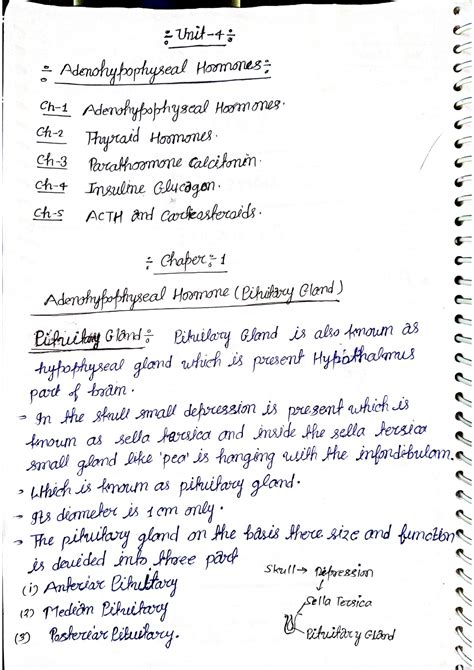 ÷ Unit-4 ÷
÷ Adenohypophyseal Hormones ÷
Ch-1 Adenohypophyseal Hormones.
Ch-2 Thyraid Hormones.
Ch-3 Parathormone Calcitonin.
Ch-4 Insuline Glucagon.
Ch-5 ACTH and Corticasteroids.
÷ Chaper ÷ 1
Adenohypophyseal Hormone (Pituitary Gland)
Pituitary Gland ÷ Pituitary Gland is also known as
hypophyseal gland which is present Hypothalmus
part of brain.
- In the skull small depression is present which is
known as sella tarsica and inside the sella tersica
small gland like 'pea' is hanging with the infondibulam.
- Which is known as pituitary gland.
- Its diameter is 1 cm only.
- The pituitary gland on the basis there size and function
is devided into three part
(i) Anteriar Pituitary
(2) Medean Pituitary
(3) Posteriar Pituitary.
Skull → Depression
Sella Tersica
Pituitary Gland